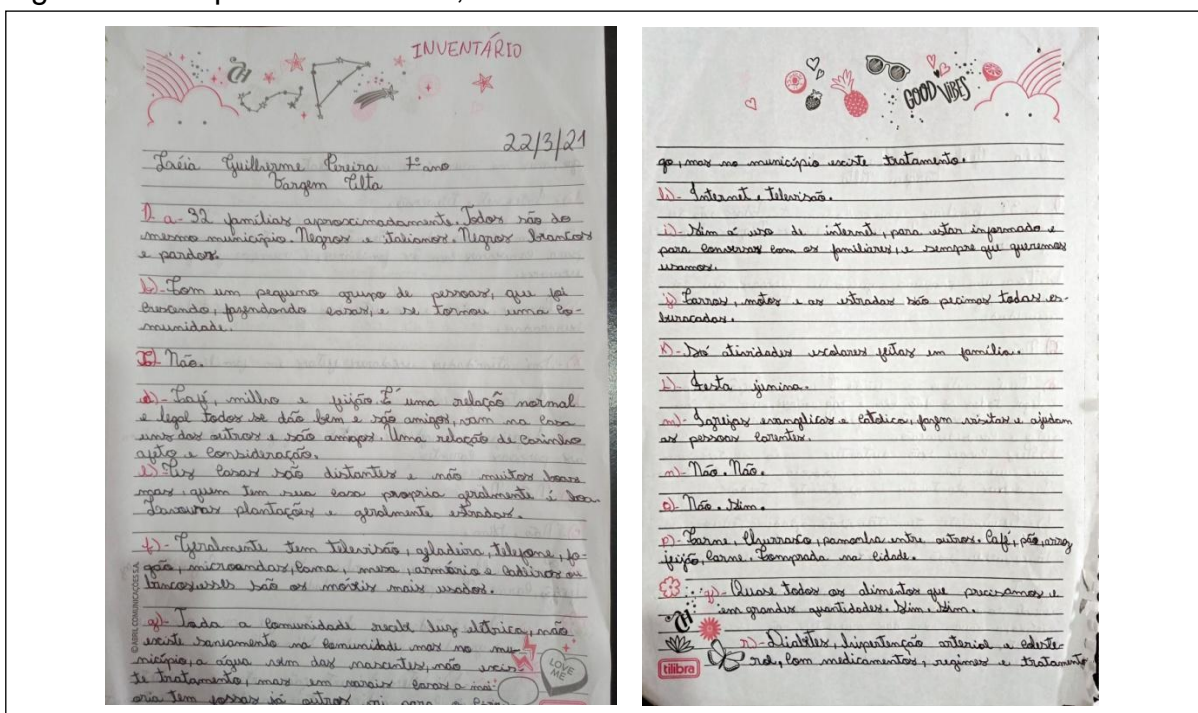 INVENTÁRIO
22/3/21
Guilherme Pereira 7º ano
Vargem Alta
a- 32 famílias aproximadamente. Todos são do
mesmo município. Negros e italianos. Negros brancos
e pardos.
b)- Com um pequeno grupo de pessoas, que foi
crescendo, casas, e se tornou uma co-
munidade.
Não.
d)- Café, milho e feijão. É uma relação normal
e legal todos se dão bem e são amigos, vam na casa
uns dos outros e são amigos. Uma relação de carinho
e consideração.
e)- As casas são distantes e não muitos boas
mas, quem tem sua casa propria geralmente é boa.
Lavouras plantações e geralmente estradas.
f)- Geralmente tem televisão, geladeira, telefone, fo-
gão, microondas, cama, mesa, armário e cadeiras ou
esses são os móveis mais usados.
g)- Toda a comunidade recebe luz elétrica, não
existe saneamento na comunidade mas no mu-
nicípio, a água vem das nascentes, não exis-
te tratamento, mas em varais casas a mai-
oria tem fossas já outros vai para o
©ABRIL COMUNICAÇÕES S.A.
LOVE
ME
GOOD VIBES
go, mas no município existe tratamento.
h)- Internet e televisão.
i)- Sim o uso de internet, para estar informado e
para conversar com os familiares, e sempre que queremos
usamos.
j) Carros, motos e as estradas são pecimas todas es-
buracadas.
k)- Só atividades escolares feitas em família.
l)- Festa junina.
m)- Igrejas evangélicas e católica, fazem visitas e ajudam
as pessoas carentes.
n)- Não. Não.
o)- Não. Sim.
p)- Carne, churrasco, pamonha entre outros. Café, pão, arroz
feijão, carne. Comprada na cidade.
q)- Quase todos os alimentos que precisamos e
em grandes quantidades. Sim. Sim.
r)- Diabetes, hipertenção arterial e coleste-
rol, com medicamentos, regimes e tratamento
tilibra